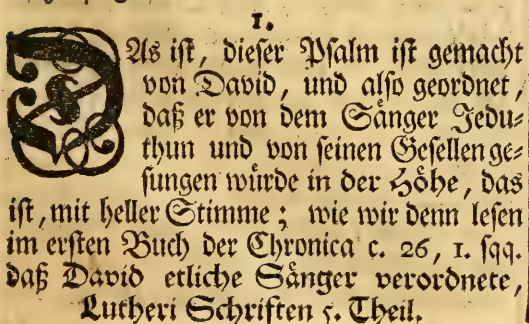 1.
DAs ist, dieser Psalm ist gemacht
von David, und also geordnet,
daß er von dem Sänger Jedu-
thun und von seinen Gesellen ge-
sungen würde in der Höhe, das
ist, mit heller Stimme; wie wir denn lesen
im ersten Buch der Chronica c. 26, 1. sqq.
daß David etliche Sänger verordnete,
Lutheri Schriften 5. Theil.